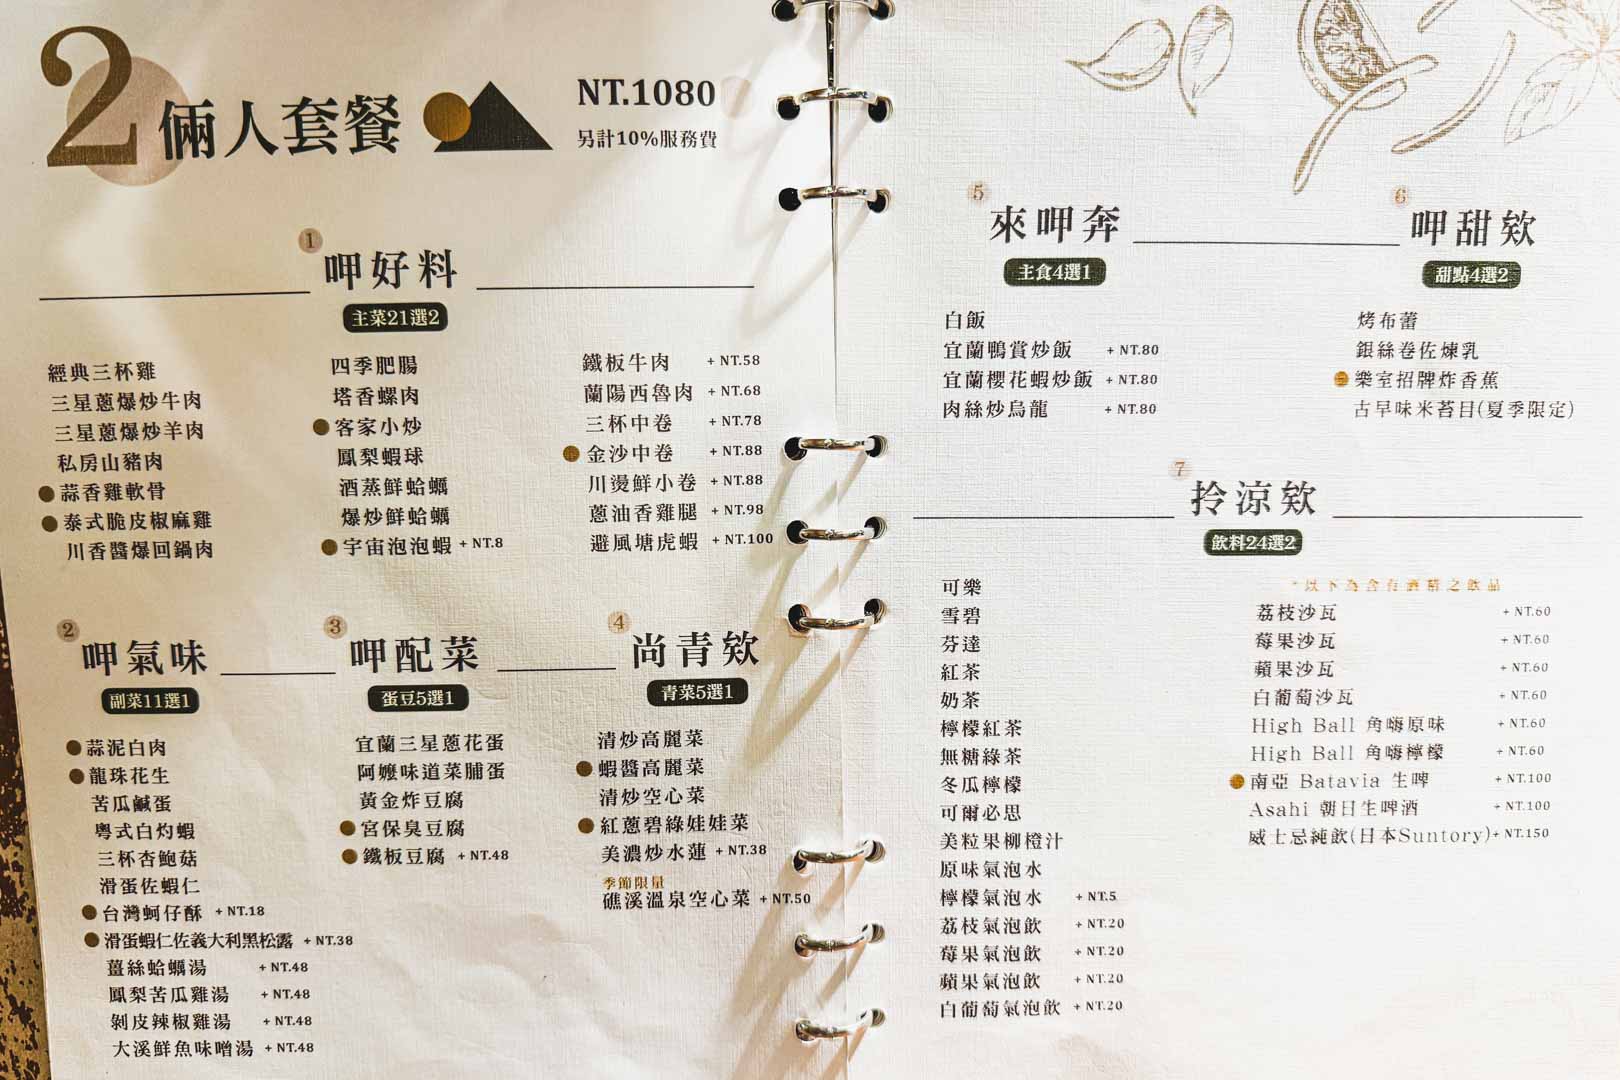 2 倆人套餐
NT.1080
另計10%服務費
1
呷好料
主菜21選2
經典三杯雞
三星蔥爆炒牛肉
三星蔥爆炒羊肉
私房山豬肉
蒜香雞軟骨
泰式脆皮椒麻雞
川香醬爆回鍋肉
四季肥腸
塔香螺肉
客家小炒
鳳梨蝦球
酒蒸鮮蛤蠣
爆炒鮮蛤蠣
宇宙泡泡蝦 + NT.8
鐵板牛肉 + NT.58
蘭陽西魯肉 + NT.68
三杯中卷 + NT.78
金沙中卷 + NT.88
川燙鮮小卷 + NT.88
蔥油香雞腿 + NT.98
避風塘虎蝦 + NT.100
2
呷氣味
副菜11選1
蒜泥白肉
龍珠花生
苦瓜鹹蛋
粵式白灼蝦
三杯杏鮑菇
滑蛋佐蝦仁
台灣蚵仔酥 + NT.18
滑蛋蝦仁佐義大利黑松露 + NT.38
薑絲蛤蠣湯 + NT.48
鳳梨苦瓜雞湯 + NT.48
剝皮辣椒雞湯 + NT.48
大溪鮮魚味噌湯 + NT.48
3
呷配菜
蛋豆5選1
宜蘭三星蔥花蛋
阿嬤味道菜脯蛋
黃金炸豆腐
宮保臭豆腐
鐵板豆腐 + NT.48
4
尚青欸
青菜5選1
清炒高麗菜
蝦醬高麗菜
清炒空心菜
紅蔥碧綠娃娃菜
美濃炒水蓮 + NT.38
季節限量
礁溪溫泉空心菜 + NT.50
5
來呷奔
主食4選1
白飯
宜蘭鴨賞炒飯 + NT.80
宜蘭櫻花蝦炒飯 + NT.80
肉絲炒烏龍 + NT.80
6
呷甜欸
甜點4選2
烤布蕾
銀絲卷佐煉乳
樂室招牌炸香蕉
古早味米苔目(夏季限定)
7
拎涼欸
飲料24選2
可樂
雪碧
芬達
紅茶
奶茶
檸檬紅茶
無糖綠茶
冬瓜檸檬
可爾必思
美粒果柳橙汁
原味氣泡水
檸檬氣泡水 + NT.5
荔枝氣泡飲 + NT.20
莓果氣泡飲 + NT.20
蘋果氣泡飲 + NT.20
白葡萄氣泡飲 + NT.20
*以下為含有酒精之飲品
荔枝沙瓦 + NT.60
莓果沙瓦 + NT.60
蘋果沙瓦 + NT.60
白葡萄沙瓦 + NT.60
High Ball 角嗨原味 + NT.60
High Ball 角嗨檸檬 + NT.60
南亞 Batavia 生啤 + NT.100
Asahi 朝日生啤酒 + NT.100
威士忌純飲(日本Suntory)+ NT.150